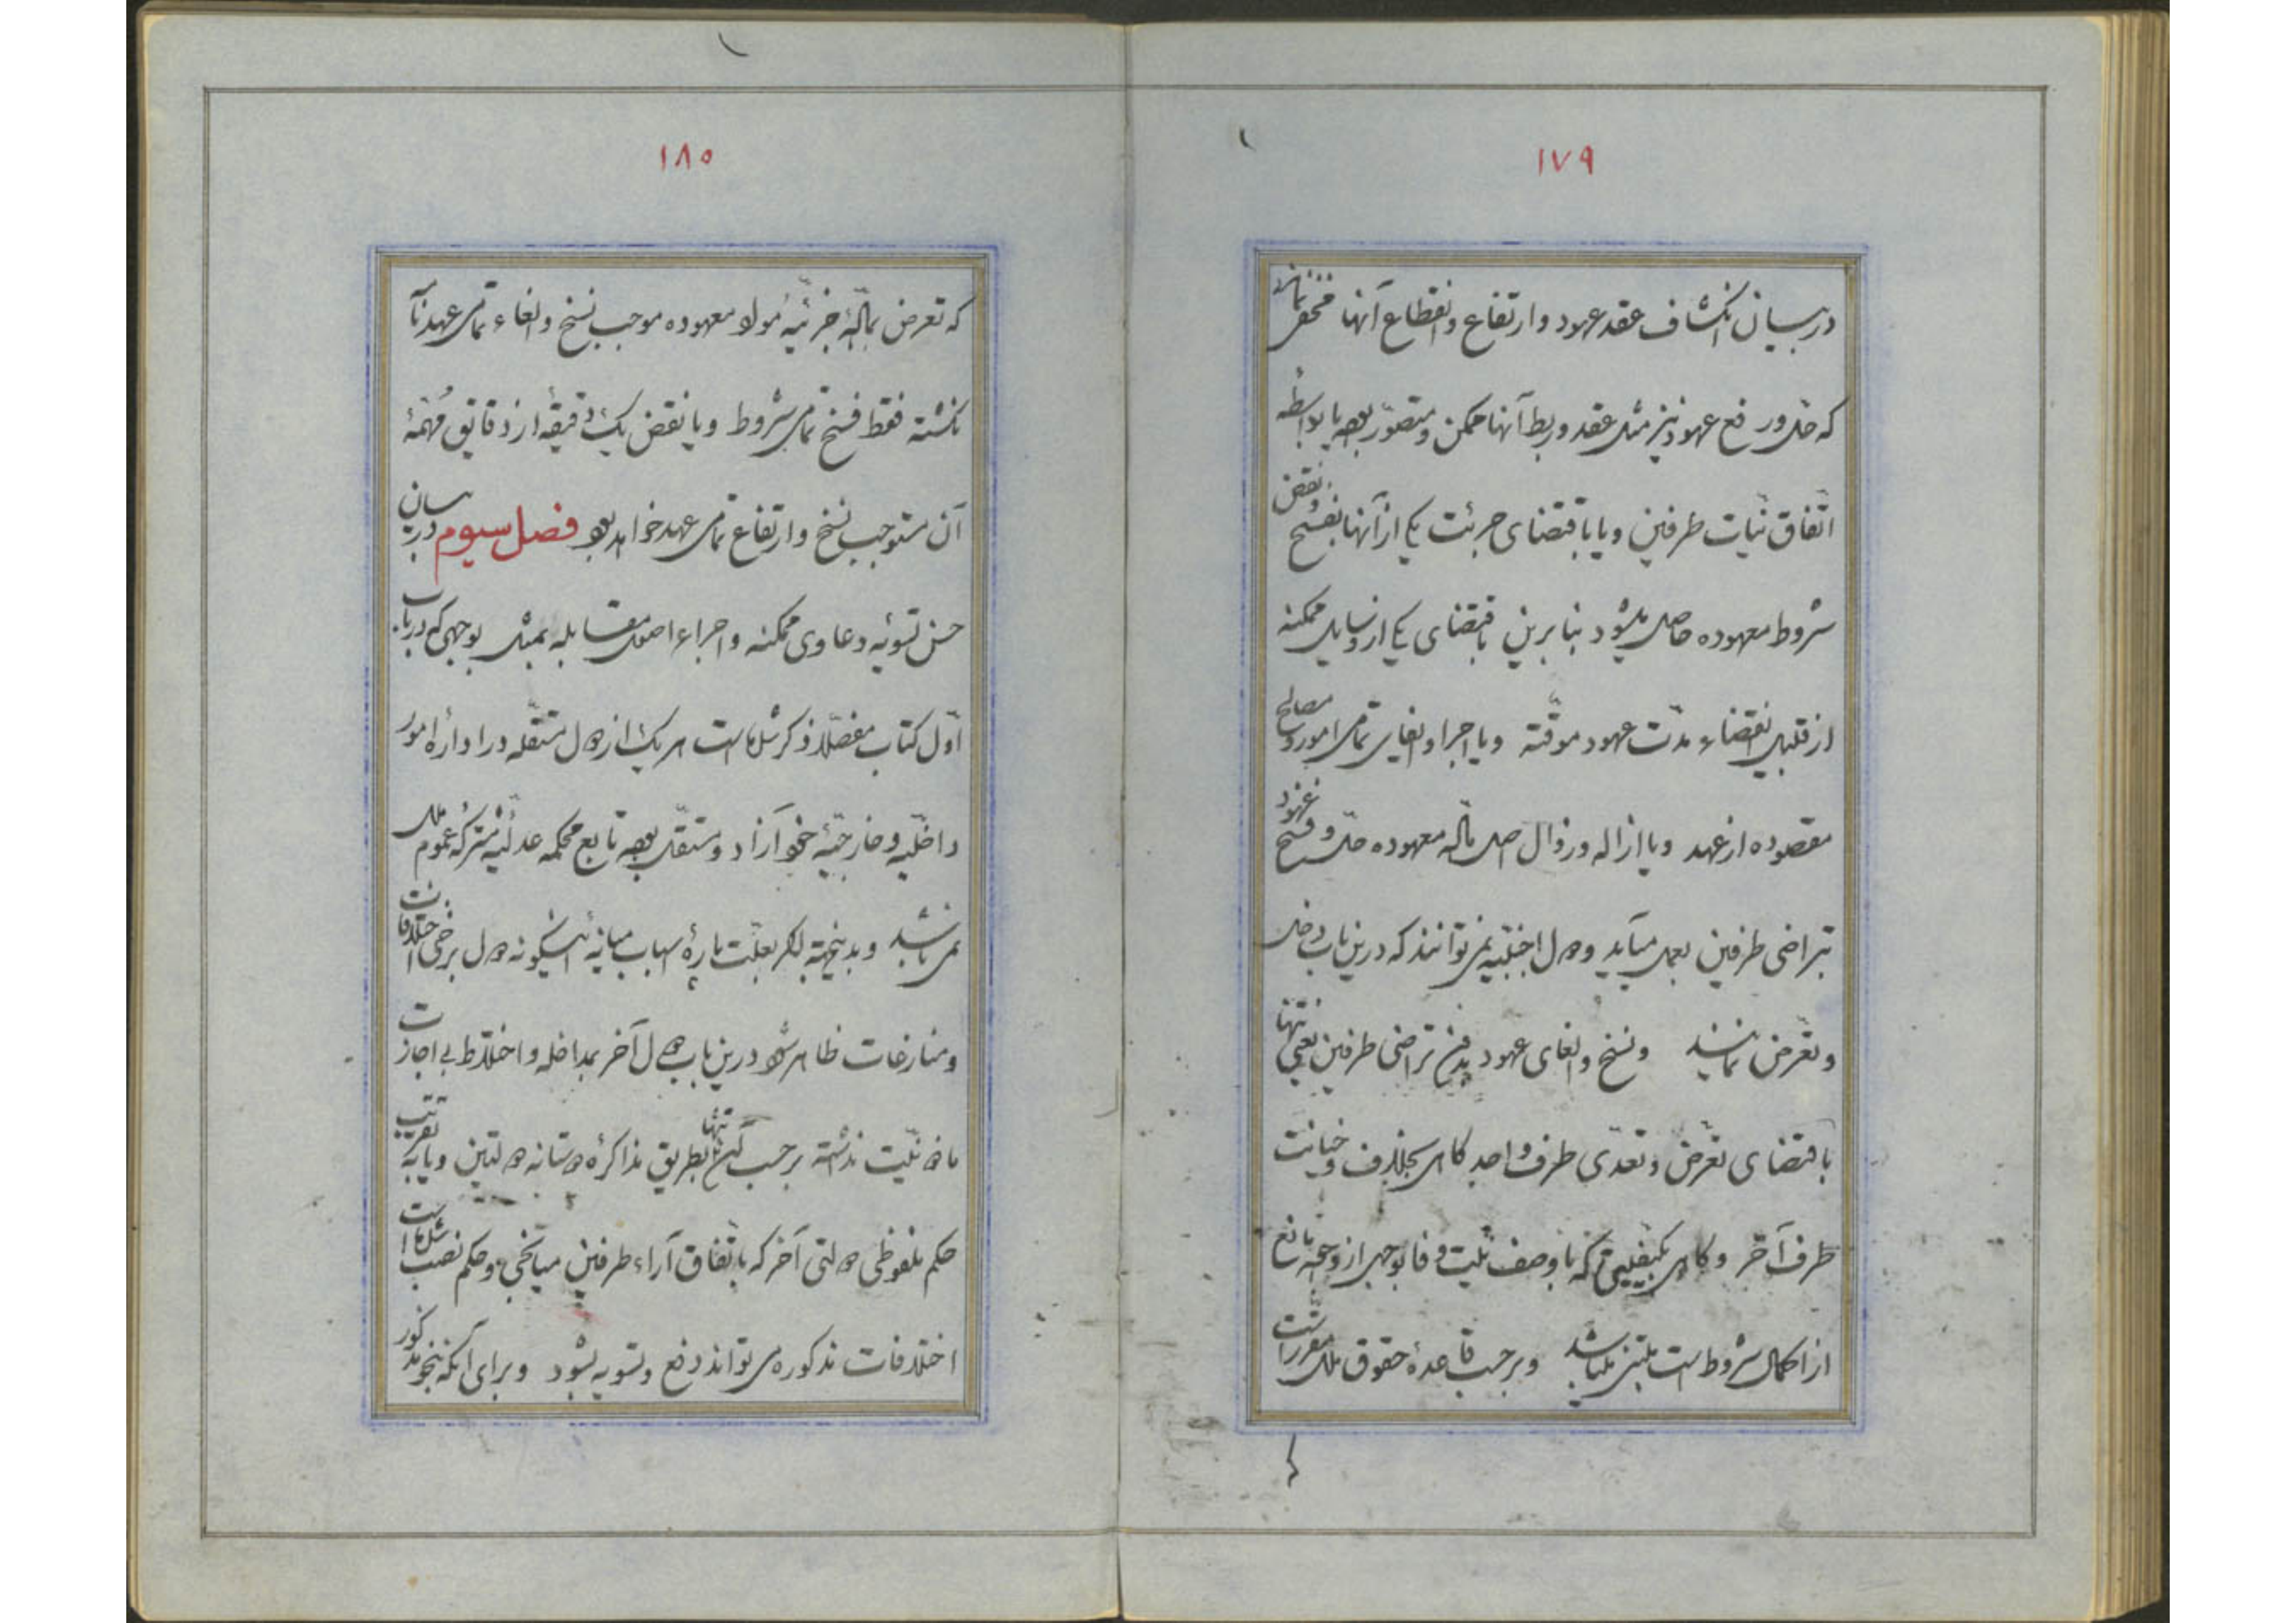 ۱۷۹
در بیان انکشاف عقد عهود و ارتفاع و انقطاع آنها مخفی نماند
که حل و رفع عهود نیز مثل عقد و ربط آنها ممکن و متصور بوده یا بواسطه
اتفاق نیات طرفین و یا باقتضای جرئت یکی از آنها بفسخ و نقض
شروط معهوده حاصل میشود بنا برین باقتضای یکی از وسایل ممکنه
از قبیل انقضاء مدت عهود موقته و یا اجرا و ایفای تمامی امور و مصالح
مقصوده از عهد و یا ازاله و زوال اصل ماله معهوده حل و فسخ عهود
بتراضی طرفین بعمل میآید و دول اجنبیه نمی توانند که درین باب دخل
و تعرض نمایند و نسخ و الغای عهود بدون تراضی طرفین یعنی تنها
باقتضای تعرض و تعدی طرف واحد گاهی بخلاف و خیانت
طرف آخر و گاهی بکیفیتی که با وصف نیت وفا بوجهی از وجوه مانع
از اکمال شروط است مبتنی میباشد و برحسب قاعدهٔ حقوق ملل مقرر است
۱۸۰
که تعرض بمالهٔ جزئیهٔ مواد معهوده موجب نسخ و الغاء تمامی عهد نا
نگشته فقط فسخ تمامی شروط و یا نقض یک دقیقه از دقایق مهمهٔ
آن مستوجب نسخ و ارتفاع تمامی عهد خواهد بود فصل سیوم در بیان
حسن تسویه دعاوی ممکنه و اجراء اصول مقابله بمثل بوجهی که در باب
اول کتاب مفصلا ذکر شده است هر یک از دول مستقله در اداره امور
داخلیه و خارجیهٔ خود آزاد و مستقل بوده تابع محکمه عدلیهٔ مشترکه عموم ملل
نمی باشد و بدینجهة بلکه بعلت پارهٔ اسباب مباینه اینگونه دول برخی اختلافات
و منازعات ظاهر شود درین باب دول آخر بمداخله و اختلاط بی اجازت
ماذونیت نداشته برحسب تنها بطریق مذاکرهٔ دوستانه دولتین و یا به تقریب
حکم ملفوظی دولتی آخر که باتفاق آراء طرفین میانجی و حکم نصب شده است
اختلافات مذکوره می تواند دفع و تسویه بشود و برای آنکه بنحو مذکور